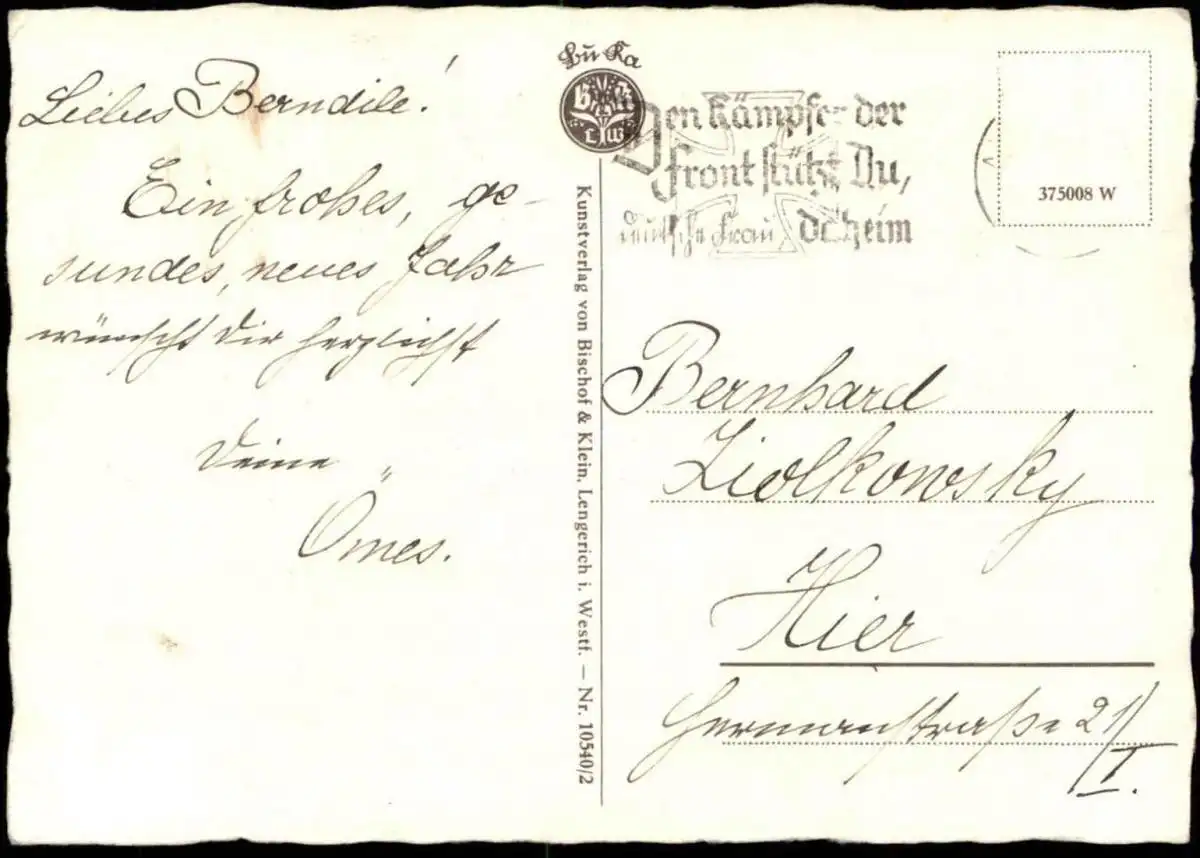 Liebes Berndile!
Ein frohes, ge-
sundes, neues Jahr
wünscht Dir herzlichst
Deine
Omes.
Bü Ka
L W
Kunstverlag von Bischof & Klein, Lengerich i. Westf. — Nr. 10540/2
Den Kämpfer der
Front stützt Du,
deutsche Frau, daheim
375008 W
Bernhard
Ziolkowsky
Hier
Hermannstraße 21/I.